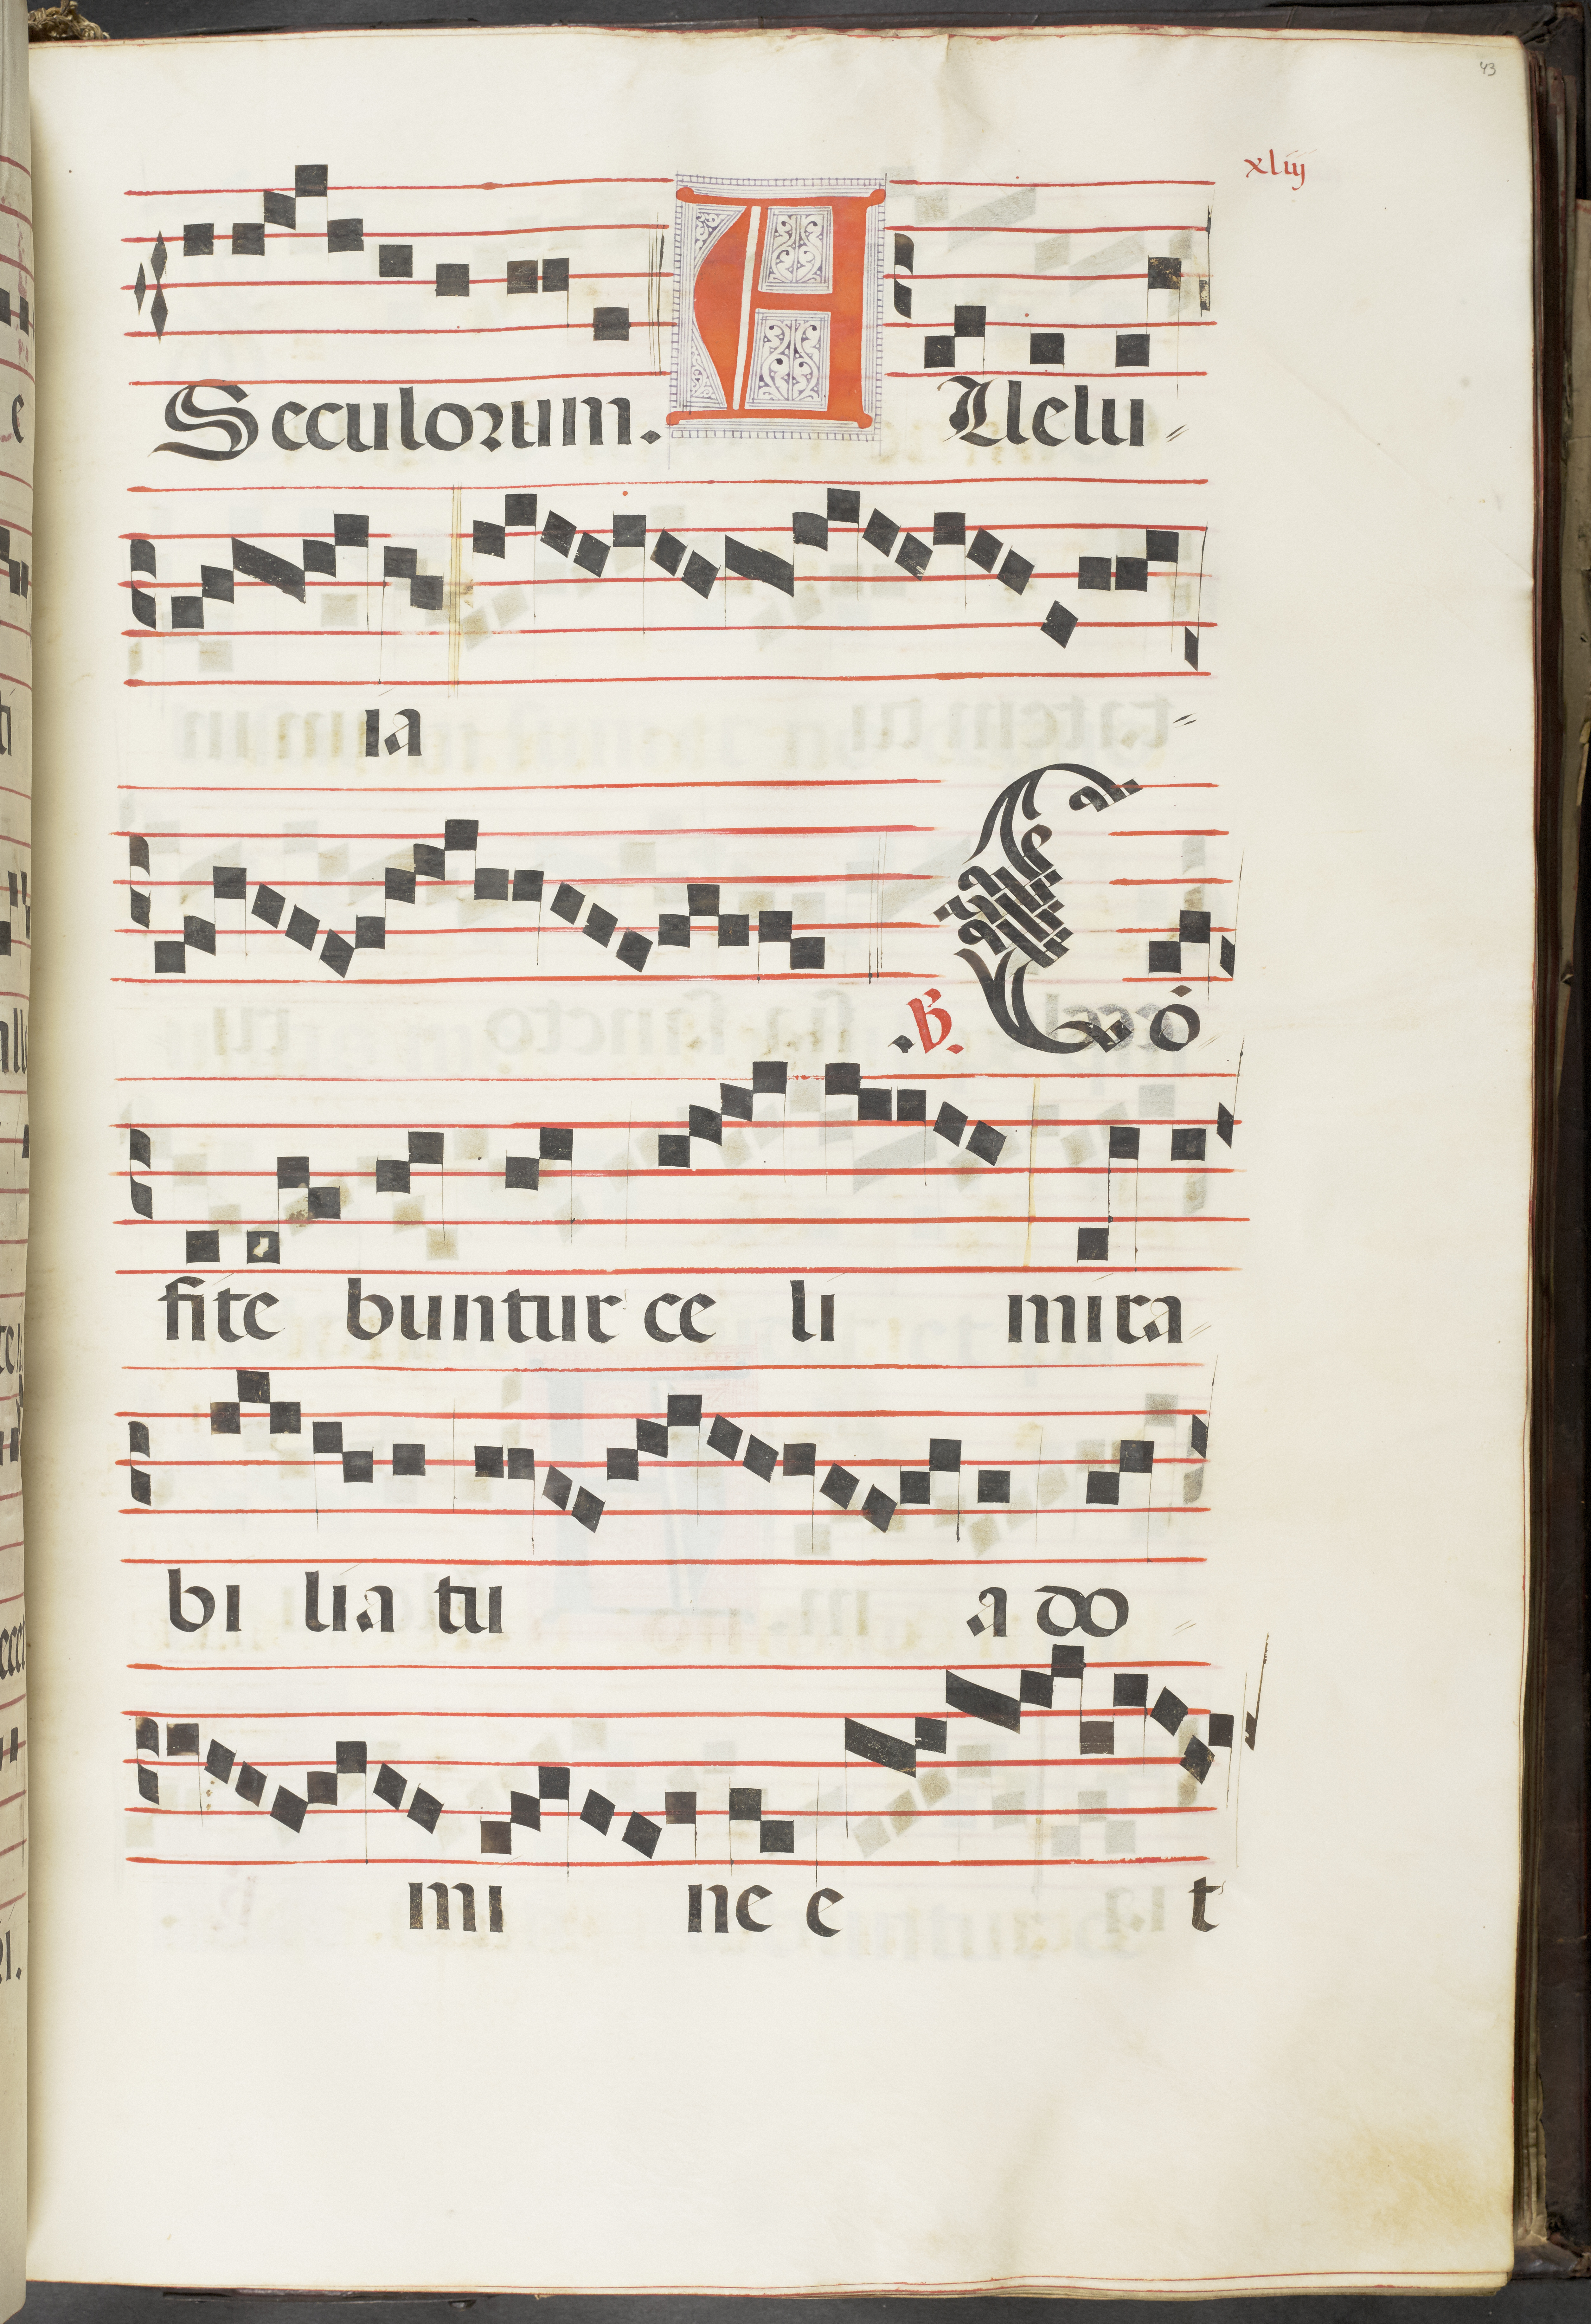 43
xliij
Seculorum. Allelu
ia
.℣. Cō
fite buntur ce li mira
bi lia tu a do
mi ne e t